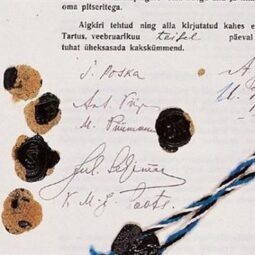 oma pitseritega.
Algkiri tehtud ning alla kirjutatud kahes e
Tartus, veebruarikuu teisel päeval
tuhat üheksasada kakskümmend.
J. Poska
A
Ant. Piip
M. Püümann
Jul. Seljamaa